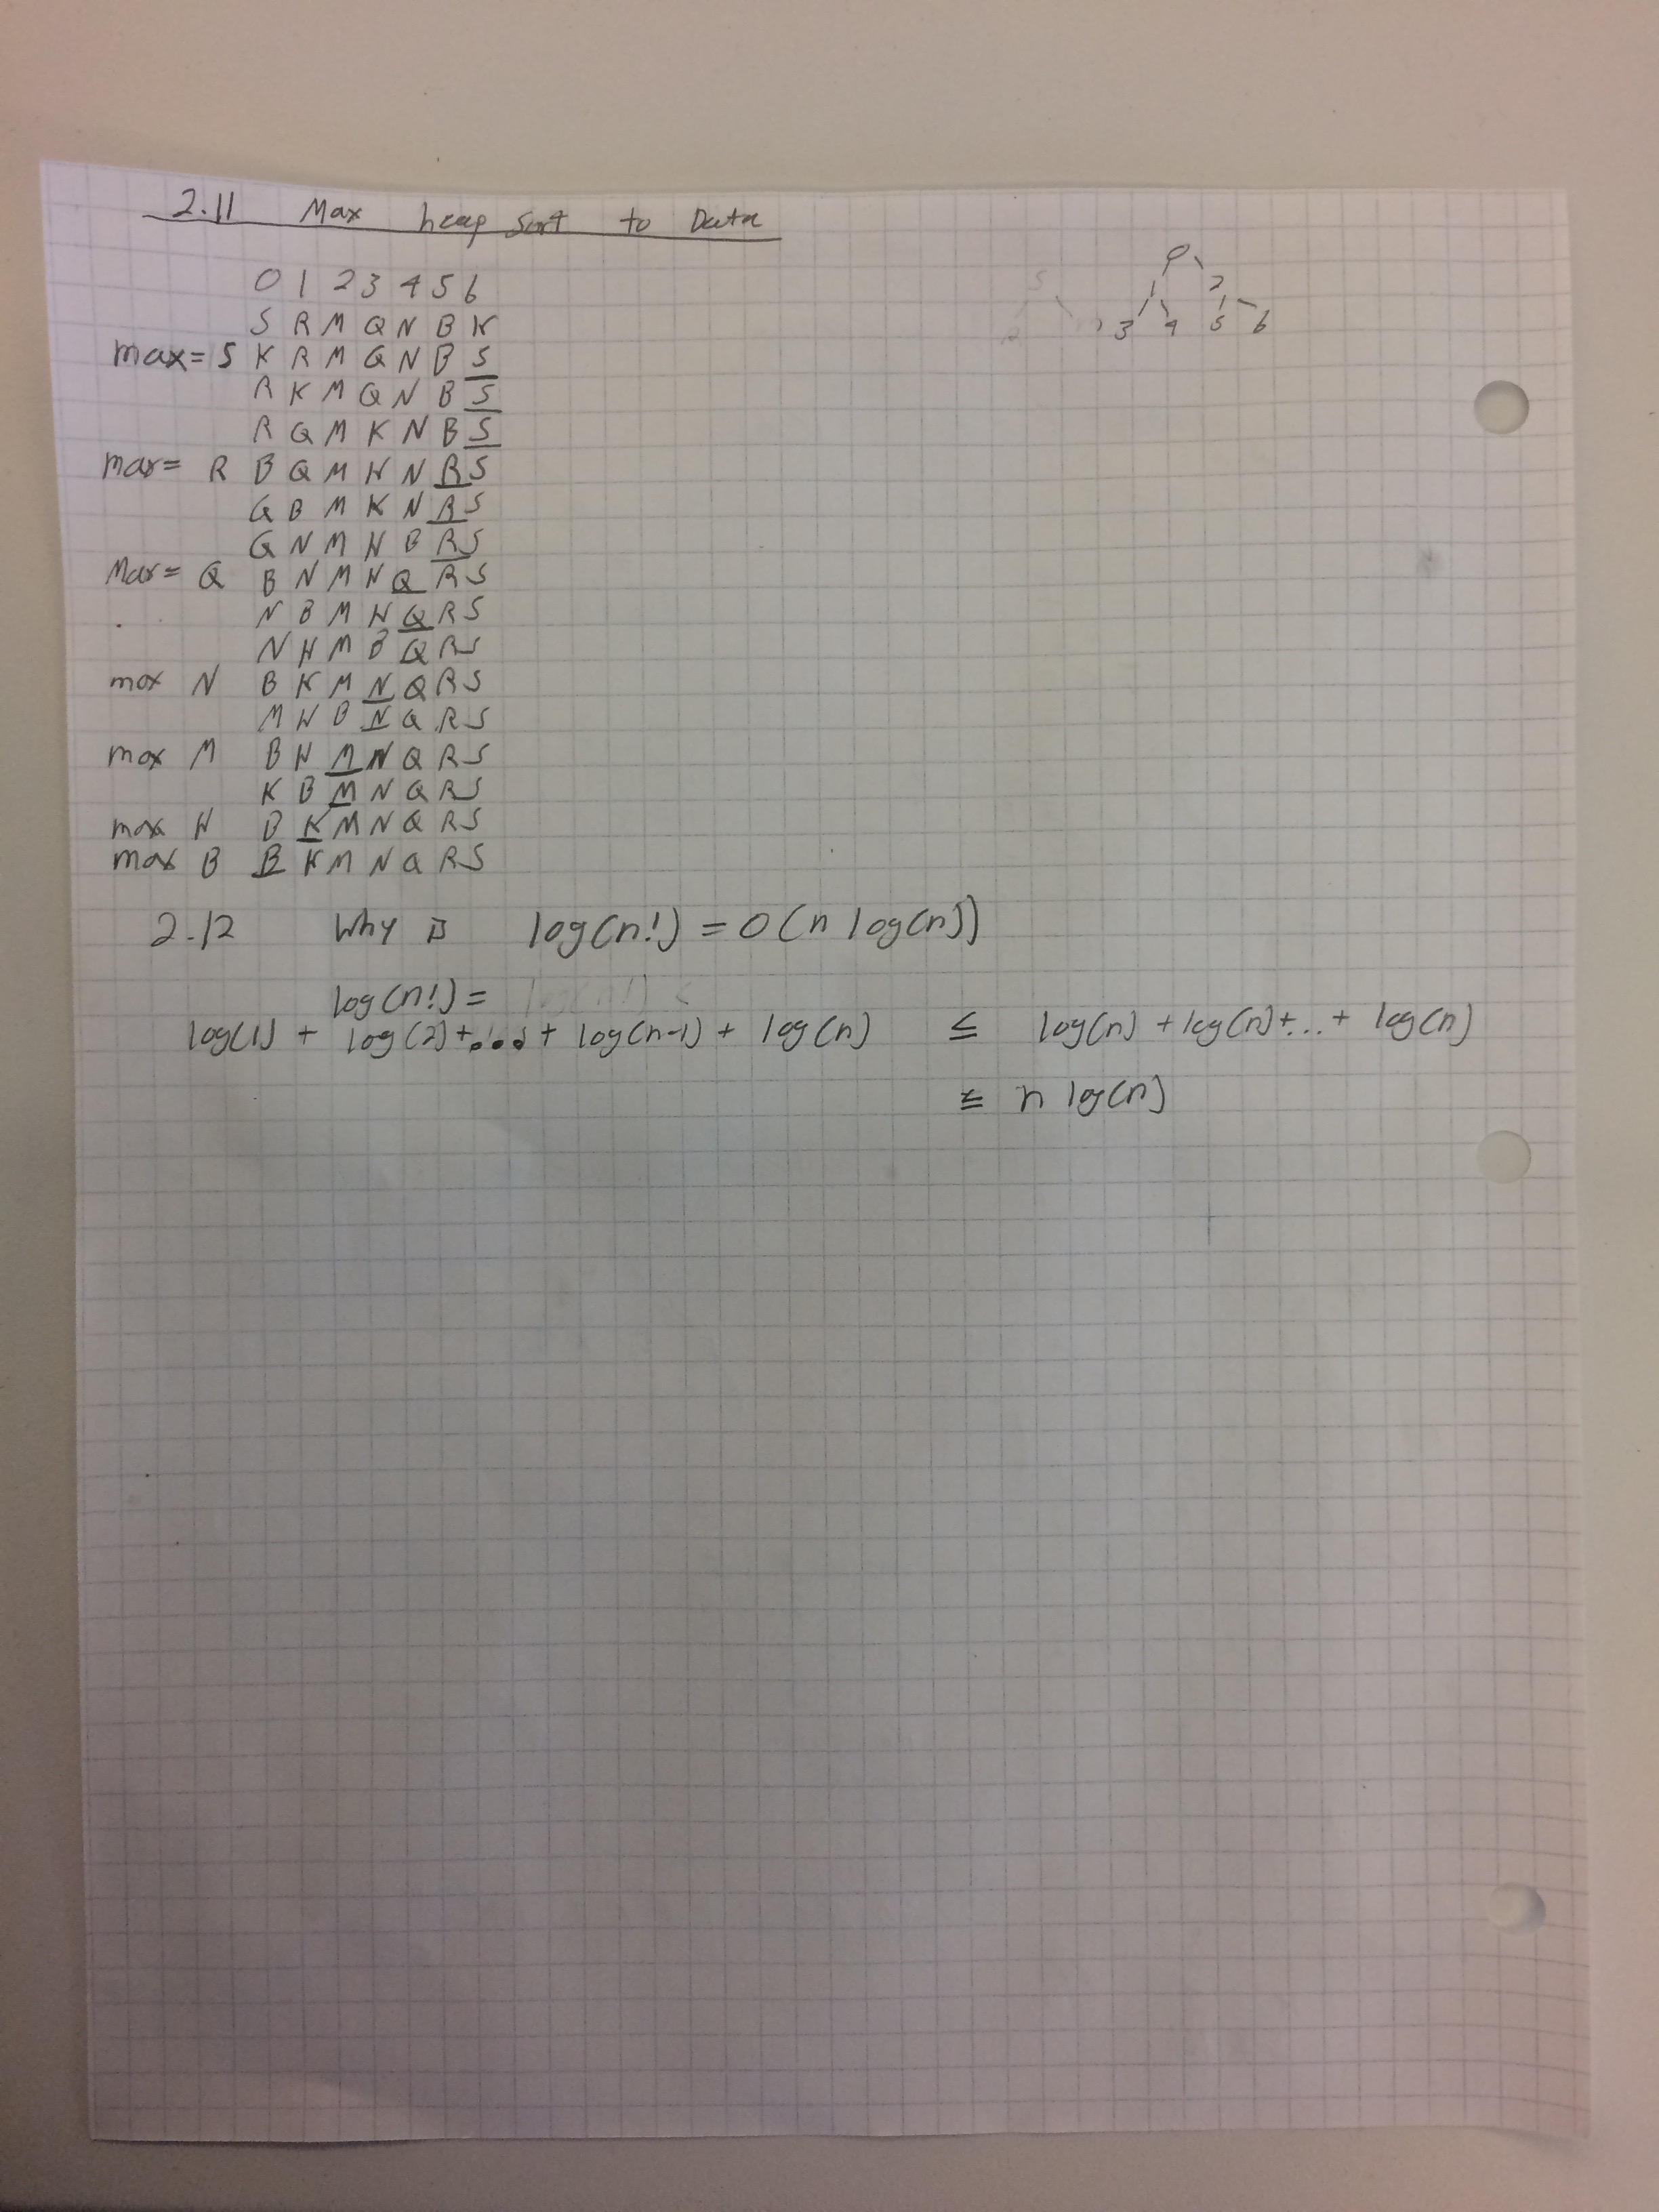 2.11 Max heap sort to Data
0 1 2 3 4 5 6
S R M Q N B K
max = S K R M Q N B S
R K M Q N B S
R Q M K N B S
max = R B Q M K N R S
Q B M K N R S
Q N M K B R S
Max = Q B N M K Q R S
N B M K Q R S
N K M B Q R S
max N B K M N Q R S
M K B N Q R S
max M B K M N Q R S
K B M N Q R S
max K B K M N Q R S
max B B K M N Q R S
0
1 2
3 4 5 6
2.12 Why is log(n!) = O(n log(n))
log(n!) =
log(1) + log(2) + ... + log(n-1) + log(n) ≤ log(n) + log(n) + ... + log(n)
≤ n log(n)